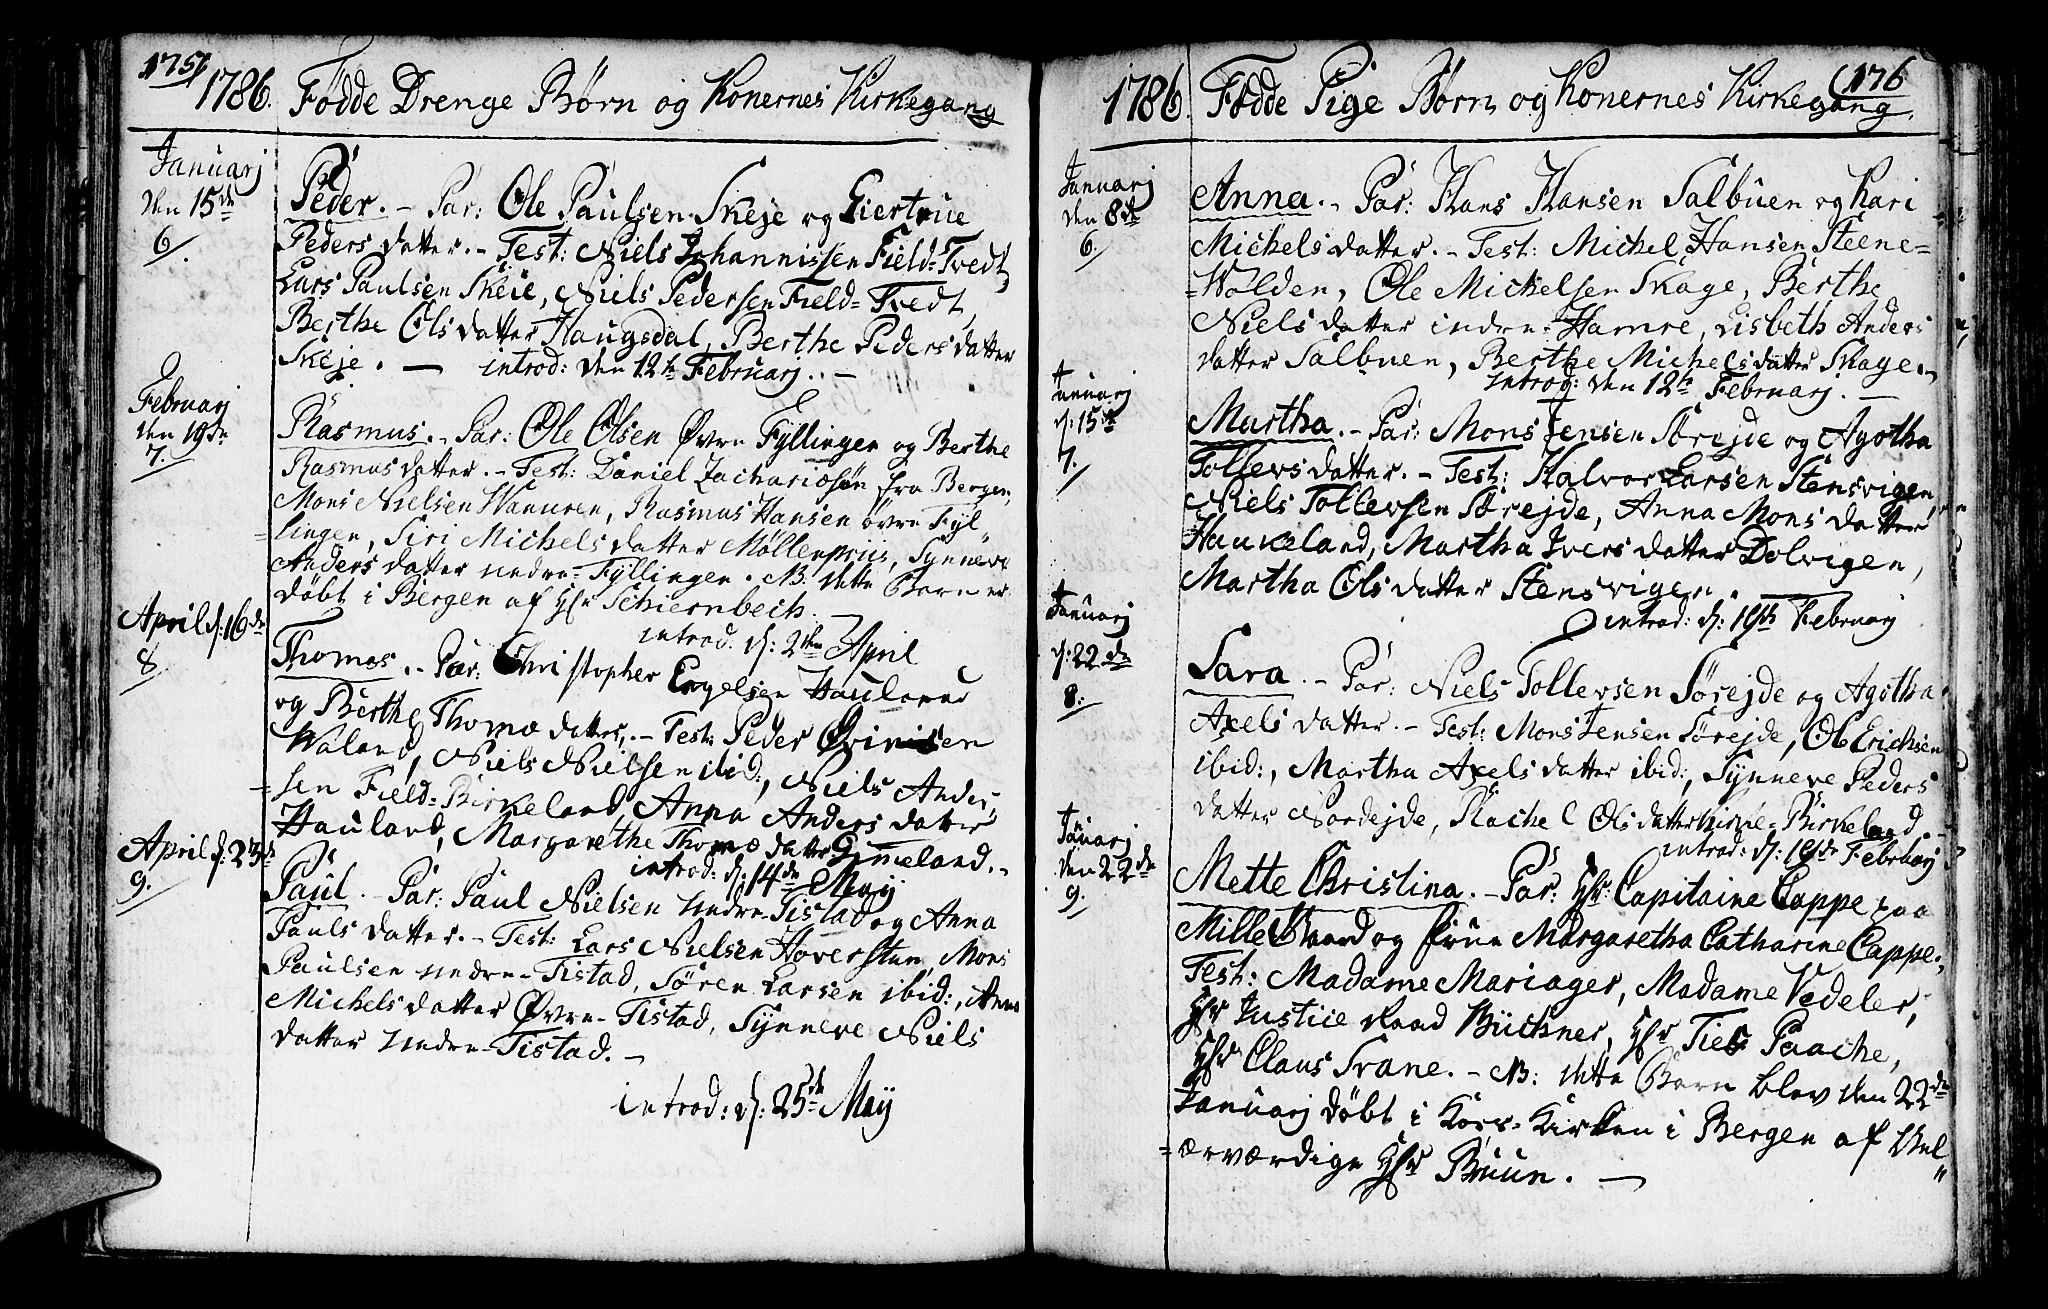 175
1786. Fødde Drenge Børn og Konernes Kirkegang
Januarj
den 15de
6.
Peder. - Par: Ole Paulsen Skeje og Giertrue
Peders datter. - Test: Niels Johannissen Field-Tvedt,
Lars Paulsen Skeie, Niels Pedersen Field-Tvedt,
Berthe Olsdatter Haugsdal, Berthe Pedersdatter
Skeje. - introd: den 12te Februarj. -
Februarj
den 19de
7.
Rasmus. - Par: Ole Olsen Øvre Fyllingen og Berthe
Rasmusdatter. - Test: Daniel Zachariøsøn fra Bergen,
Mons Nielsen Wannen, Rasmus Hansen øvre Fyl-
-lingen, Siri Michelsdatter Møllenpriis, Synneve
Anders datter nedre-Fyllingen. NB: dette Barn er
døbt i Bergen af Hr Schiernbech.
introd: d: 2den April
April d: 16de
8.
Thomas. - Par: Christopher Engelsen Hauland
og Berthe Thomæ datter. - Test: Peder Øvin sen
Waland, Niels Nielsen ibid:, Niels Ander-
-sen Field-Birkeland, Anna Anders datter
Hauland, Margarethe Thomæ datter Grimeland. -
introd: d: 14de May
April d: 23de
9.
Paul. - Par: Paul Nielsen Nedre-Tistad og Anna
Pauls datter. - Test: Lars Nielsen Hoversten, Mons
Paulsen nedre-Tistad, Søren Larsen ibid:, Anna
Michelsdatter Øvre-Tistad, Synneve Niels
datter Nedre-Tistad. -
introd: d: 25de May
176
1786. Fødde Pige Børn og Konernes Kirkegang.
Januarj
den 8de
6.
Anna. - Par: Hans Hansen Salbuen og Kari
Michelsdatter. - Test: Michel Hansen Steene-
-Wolden, Ole Michelsen Skage, Berthe
Nielsdatter indre-Hamre, Lisbeth Anders
datter Salbuen, Berthe Michelsdatter Skage. -
introd: den 12te Februarj. -
Januarj
d: 15de
7.
Martha. - Par: Mons Jensen Sørejde og Agotha
Tollevsdatter. - Test: Halvor Larsen Stensvigen,
Niels Tollevsen Sørejde, Anna Mons datter
Haukeland, Martha Ivers datter Dolvigen,
Martha Olsdatter Stensvigen.
introd: d: 19de Februarj
Januarj
d: 22de
8.
Sara. - Par: Niels Tollevsen Sørejde og Agotha
Axels datter. - Test: Mons Jensen Sørejde, Ole Erichsen
ibid:, Martha Axels datter ibid:, Synneve Peders
datter Nordejde, Rachel Olsdatter Kirke-Birkeland. -
introd: d: 19de Februarj
Januarj
den 22de
9.
Mette Christina. - Par: Hr Capitaine Cappe paa
Mildegaard og Frue Margaretha Catharine Cappe.,
Test: Madame Mariager, Madame Vedeler,
Hr Justice Raad Büchner, Hr Ties Paache,
Hr Claus Svane. - NB: dette Barn blev den 22de
Januarj døbt i Kors-Kirken i Bergen af Vel
-ærværdige Hr Bruun. -